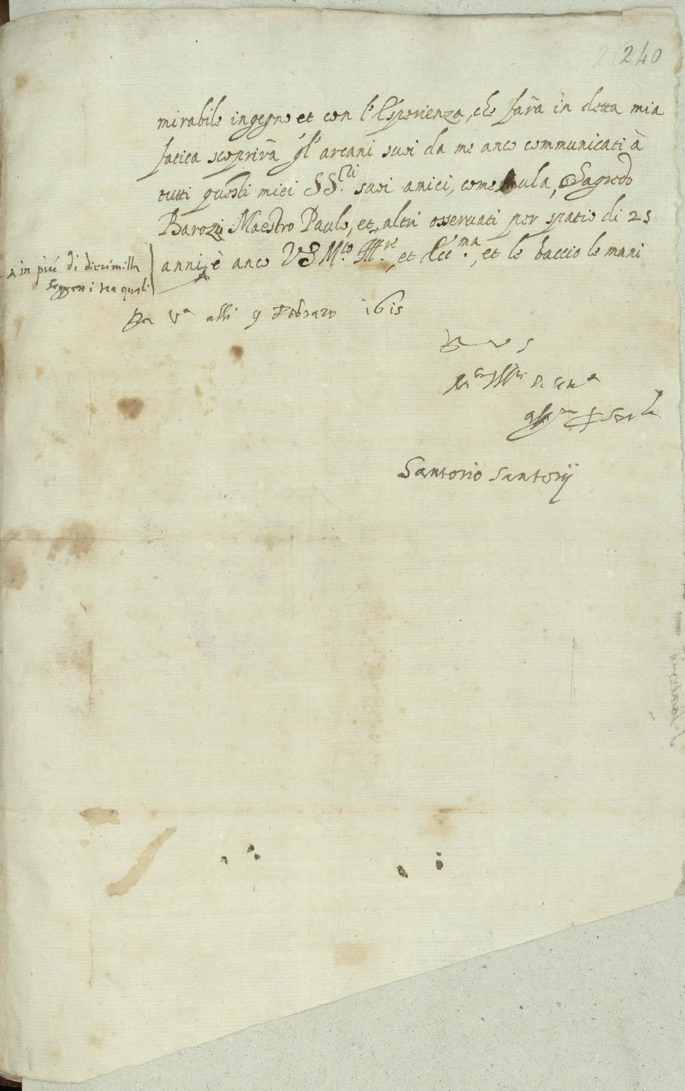 240
mirabile ingegno et con l'Esperienza, che farà in detta mia
fatica scoprirà gl'arcani suoi da me anco communicati à
tutti questi miei SS.ri suoi amici, come Mula, Sagredo
Barozzi Maestro Paulo, et altri osservati per spatio di 25
anni, è anco VS M.to Ill.re, et Ecc.ma, et le baccio le mani
in più di diecimilla
soggetti tra quali
Da V.a alli 9 Febraro 1615
D V S
M.to Ill.re et Ecc.ma
Santorio Santorij